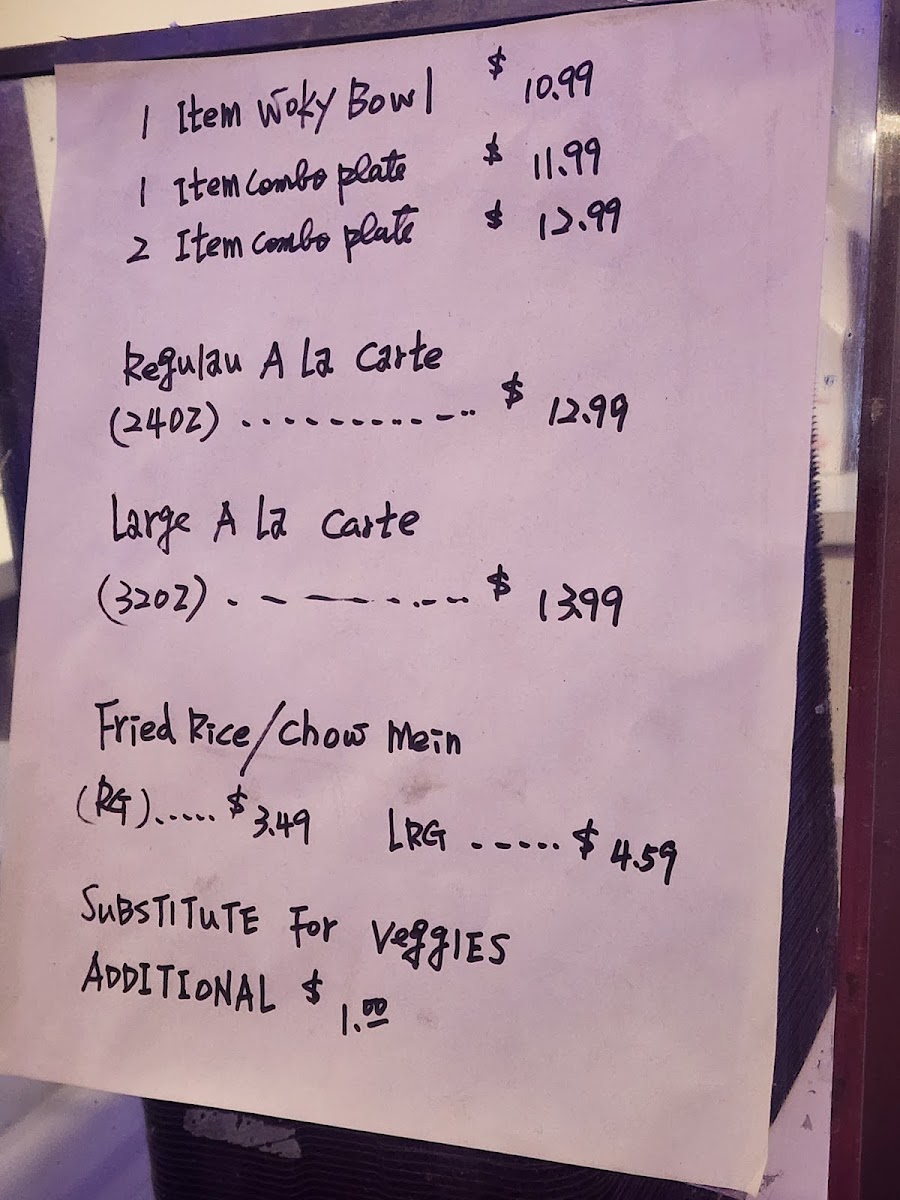 1 Item Woky Bowl $ 10.99
1 Item combo plate $ 11.99
2 Item combo plate $ 12.99
Regulau A La Carte
(24OZ) ............ $ 12.99
Large A La Carte
(32OZ) . - - - - . . - - $ 13.99
Fried Rice/Chow Mein
(RG)..... $ 3.49 LRG ...... $ 4.59
SuBSTITuTE For VeggIES
ADDITIONAL $ 1.00